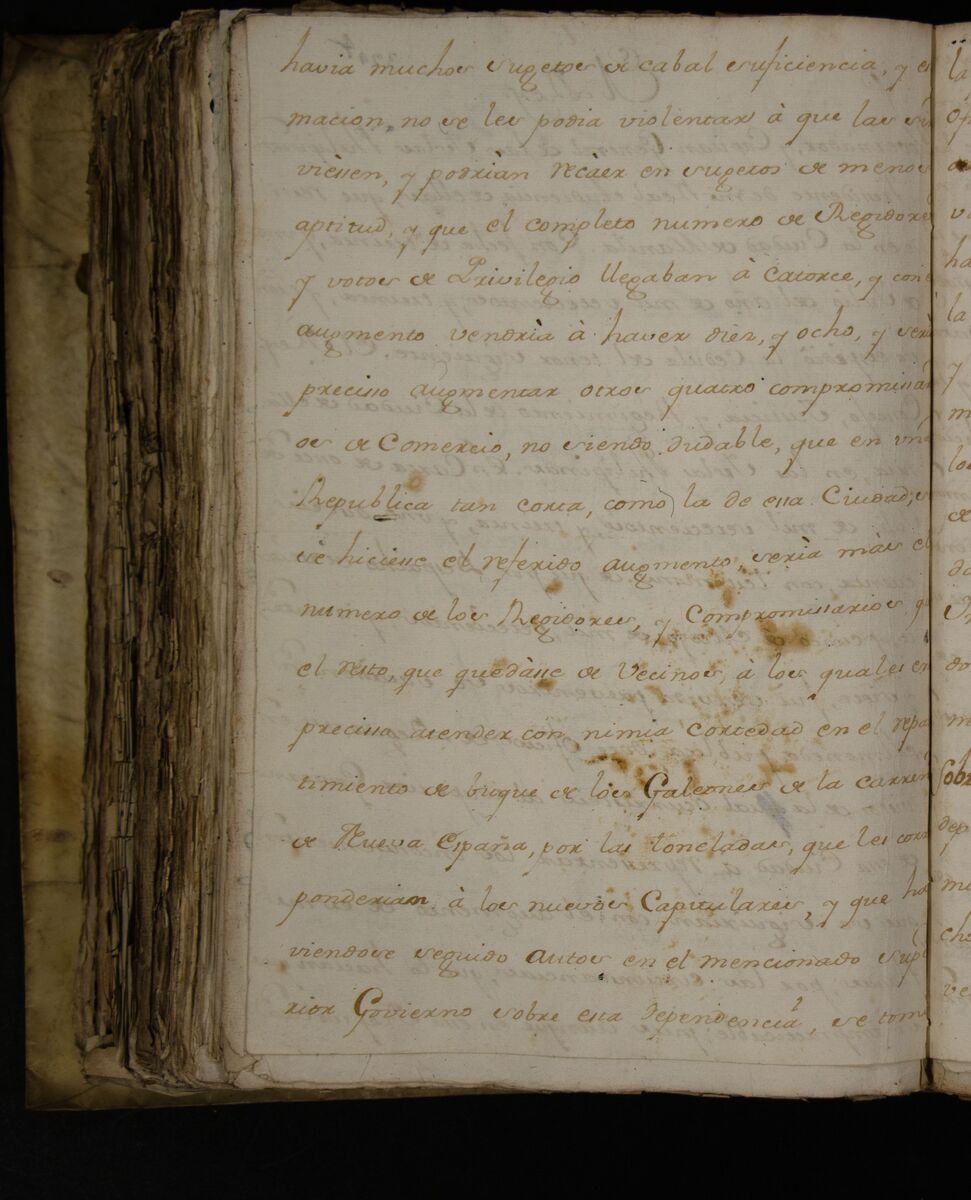 havia muchos sugetos de cabal suficiencia, y es
macion, no se les podia violentar à que las sir
viesen, y podrìan recàer en sugetos de menos
aptitud, y que el completo numero de Regidores
y votos de Privilegio llegaban à catorce, y con e
augmento vendrìa à haver diez, y ocho, y serìa
preciso augmentar otros quatro compromissàri
os de Comercio, no siendo dudable, que en una
Republica tan corta, como la de essa Ciudad, si
se hiciesse el referido augmento, serìa màs el
numero de los Regidores, y Compromissarios, que
el resto, que quedàsse de Vecinos, à los quales era
precisso atender con nimia cortedad en el repar
timiento de buque de los Galeones de la carrera
de Nueva España, por las toneladas, que les corres
ponderian à los nuevos Capitulares, y que ha
viendose seguido autos en el mencionado supe
rior Govierno sobre esta dependencia, se tom